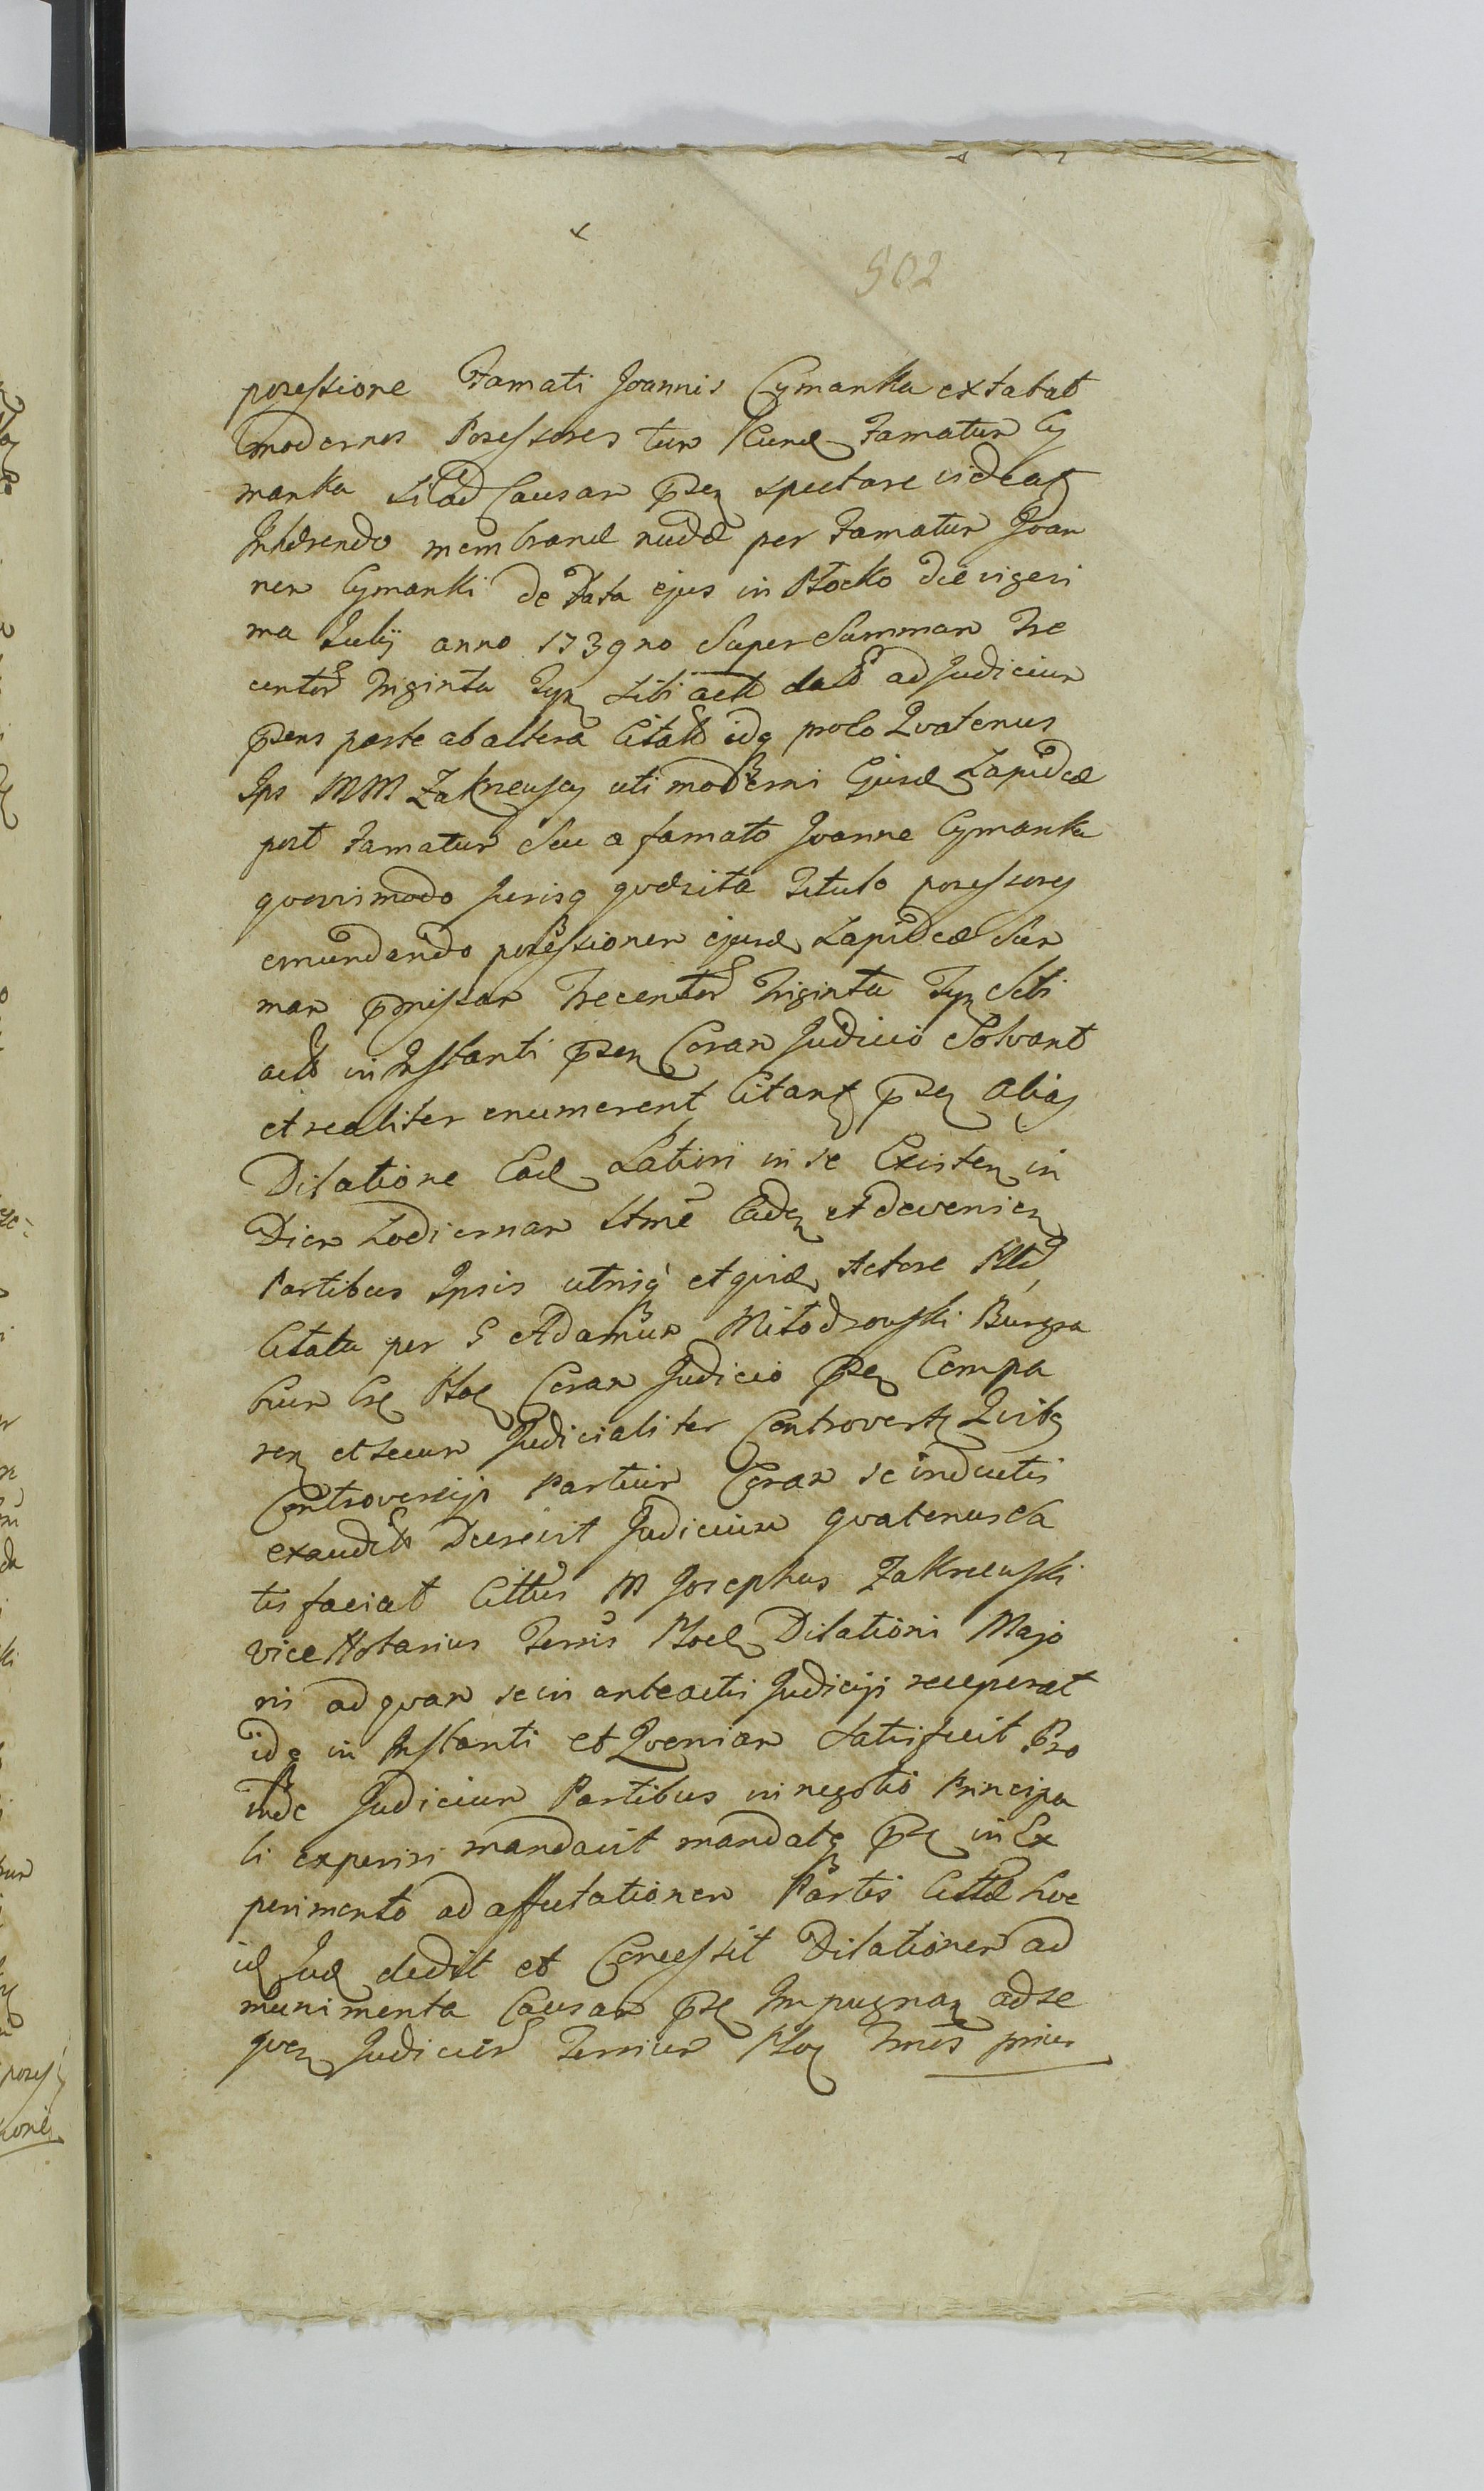 502
posessione Famati Joannis Cymanka extabat
modernos Posessores tum eund Famatum Cy
manka si ad Causam psen spectare videat
Inhærendo membranæ nudæ per Famatum Joan
nem Cymanki de Data ejus in Płocko die vigesi
ma Julij anno 1739no Super Summam Tre
centor Triginta Tyn sibi actt datt ad Judicium
psens parte ab altera Citatt idq prolo Qvatenus
Ips MM Zakrzewscy uti moderni Ejusd Lapideæ
post Famatum Seu a famato Joanne Cymanka
qvovismodo Jurisq qvæsita Titulo posessores
emundando posessionem ejusd Lapideæ Sum
mam pmissam Trecentor Triginta Tyn Sibi
actt in Instanti psen Coram Judicio Solvant
et realiter enumerent Citant psen Alias
Dilatione Ead Latiori in se Existen in
Diem hodiernam Ittme Caden et devenien
Partibus Ipsis utrisq et qvid Actore
Citata per G Adamum Młodzowski Burgra
bium Coram Judicio psen Compa
ren et secum Judicialiter Controverten Quibq
Controversijs Partium Coram se inductis
exauditt Decrevit Judicium qvatenus Sa
tisfaciat Cittus M Josephus Zakrzewski
vice Notarius Terris Płocen Dilationi Majo
ri ad qvam se in anteactis Judicijs receperat
idq in Instanti et Qvoniam Satisfecit Pro
inde Judicium Partibus in negotio Principa
li experiri mandavit mandatq pse in Ex
perimento ad affectationem Partis Cittæ hoc
id Jud dedit et Concessit Dilationem ad
munimenta Causam pse Impugnan ad se
qven Judicium Terrium Płoc Trmis prius